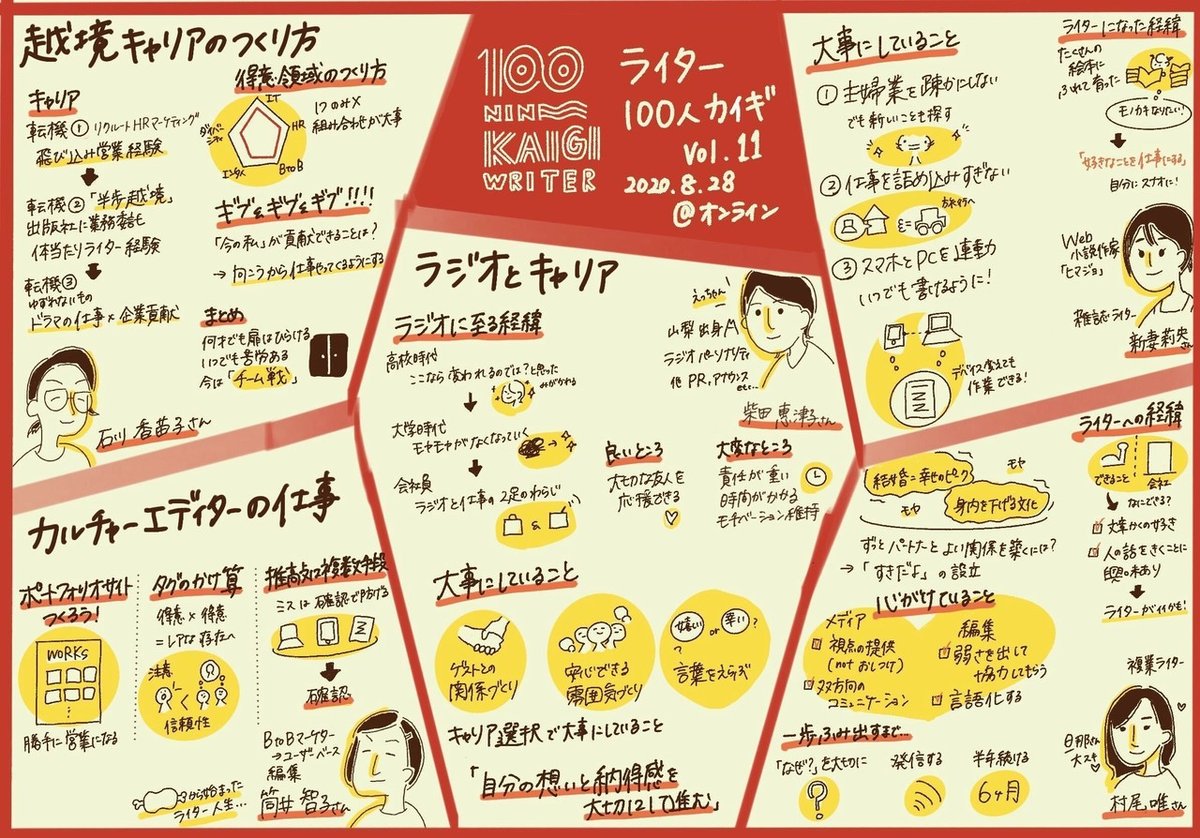 100
NIN
KAIGI
WRITER
ライター
100人カイギ
Vol.11
2020.8.28
@オンライン
越境キャリアのつくり方
キャリア
転機① リクルートHRマーケティング
飛び込み営業経験
転機②「半歩越境」
出版社に業務委託
体当たりライター経験
転機③
ゆずれないもの
ドラマの仕事×企業貢献
得意領域のつくり方
IT
HR
BtoB
エンタメ
ダイバーシティ
1つのみ×
組み合わせが大事
ギブ&ギブ&ギブ!!!!
「今の私」が貢献できることは?
→ 向こうから仕事やってくるようにする
まとめ
何才でも扉はひらける
いつでも苦労ある
今は「チーム戦」
石川 香苗子さん
カルチャーエディターの仕事
ポートフォリオサイト
つくろう!
WORKS
勝手に営業になる
タグのかけ算
得意×得意
=レアな存在へ
注意
信頼性
推高点に複数手段
ミスは確認で防げる
確認
BtoBマーケター
→ユーザベース
編集
筒井 智子さん
から始まった
ライター人生…
ラジオとキャリア
ラジオに至る経緯
高校時代
ここなら変われるのでは?と思った
みがかれる
大学時代
モヤモヤがなくなっていく
会社員
ラジオと仕事の2足のわらじ
&
えっちゃん
山梨出身
ラジオパーソナリティ
他 PR,アナウンス
etc...
柴田 恵津子さん
良いところ
大切な友人を
応援できる
大変なところ
責任が重い
時間がかかる
モチベーション維持
大事にしていること
ゲストとの
関係づくり
安心できる
雰囲気づくり
嬉しい or 幸い?
言葉をえらぶ
キャリア選択で大事にしていること
「自分の想いと納得感を
大切にして進む」
大事にしていること
① 主婦業を疎かにしない
でも新しいことも探す
② 仕事を詰め込みすぎない
旅行へ
③ スマホとPCを連動
いつでも書けるように!
デバイス変えても
作業できる!
ライターになった経緯
たくさんの
絵本に
ふれて育った
モノカキなりたい!
「好きなことを仕事にする」
自分にスナオに!
Web
小説作家
「ヒマジョ」
雑誌ライター
新妻莉央さん
結婚=幸せのピーク
モヤ
モヤ
身内を下げる文化
ずっとパートナーとよい関係を築くには?
→「すきだよ」の設立
心がけていること
メディア
視点の提供
(not おしつけ)
双方向の
コミュニケーション
編集
弱さを出して
協力してもらう
言語化する
一歩ふみ出すまで…
「なぜ?」を大切に
?
発信する
半年続ける
6ヶ月
ライターへの経緯
できること
会社
なにできる?
文章かくの好き
人の話をきくことに
興味あり
ライターがイイかも!
複業ライター
旦那さん
大スキ
村尾 唯さん